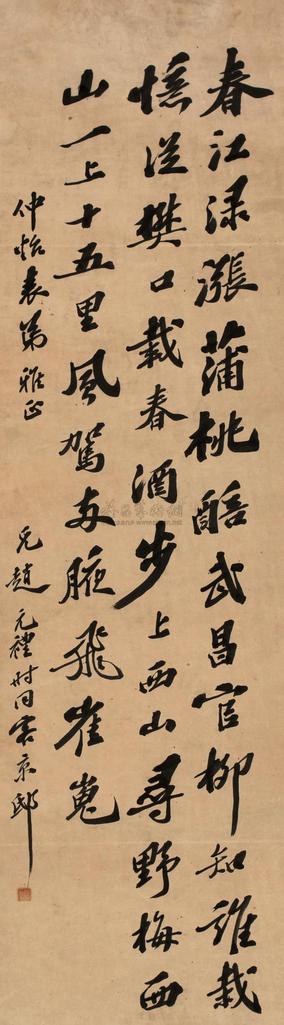 春江渌漲蒲桃醅武昌官柳知誰栽
憶從樊口載春酒步上西山尋野梅西
山一上十五里風駕兩腋飛崔嵬
仲怡表弟雅正
兄趙元禮時同客京邸